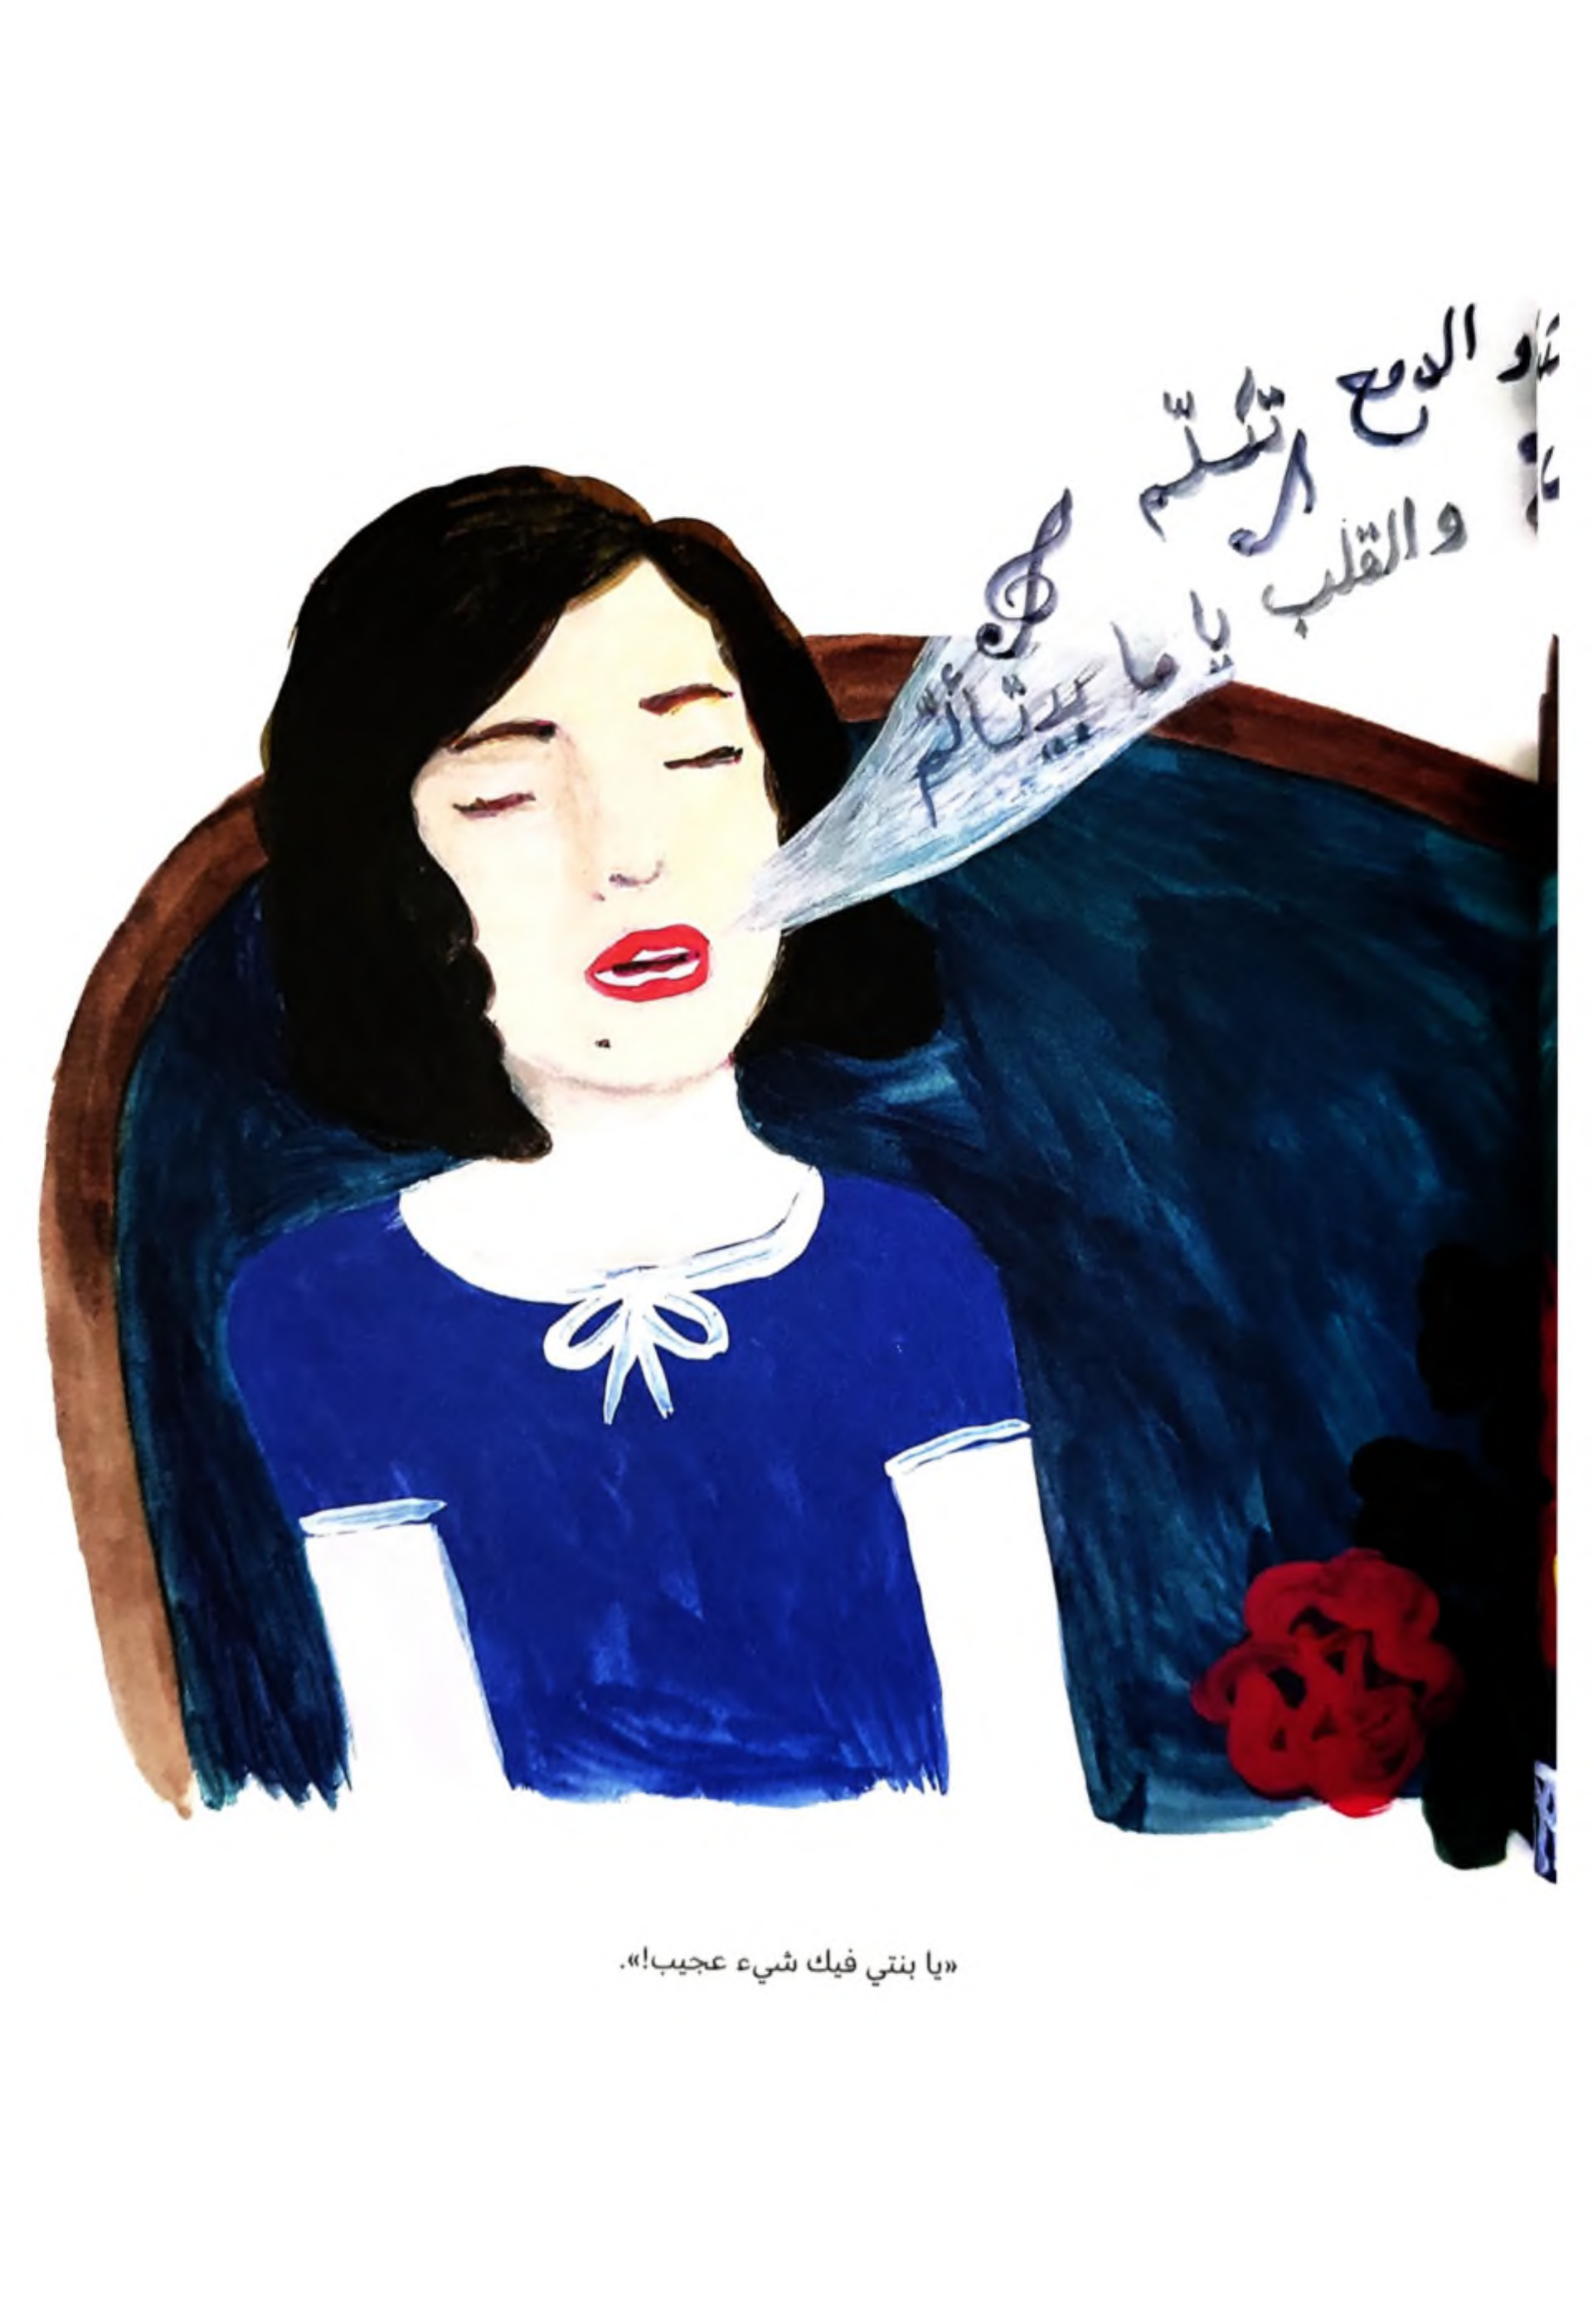 و الدمع
والقلب يا ما بيتألّم
«يا بنتي فيك شيء عجيب!».